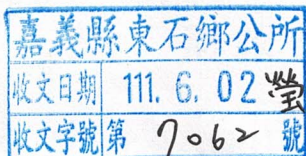 嘉義縣東石鄉公所
收文日期 111. 6. 02 瑩
收文字號 第 7062 號